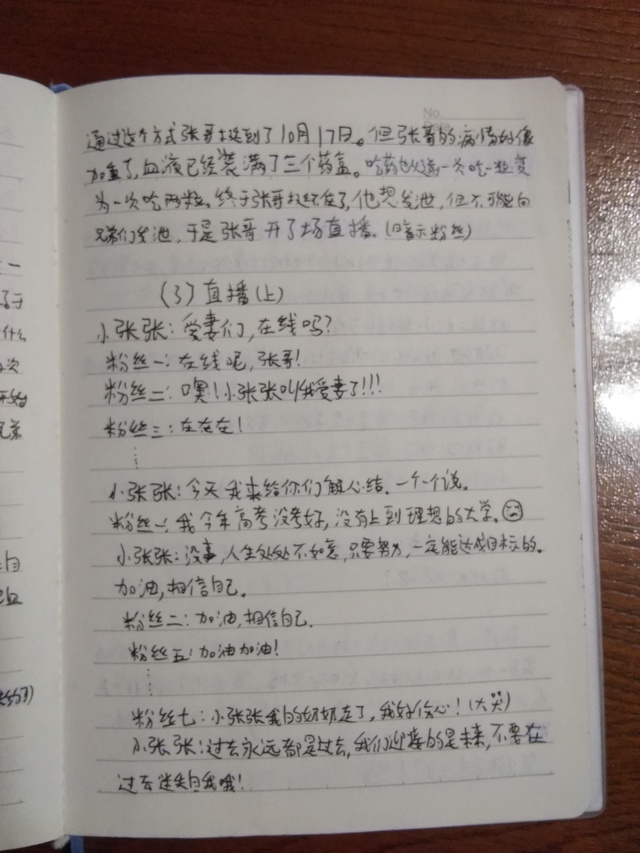 No.
通过这个方式张哥挺到了10月17日。但张哥的病情好像
加重了,血液已经装满了三个药盒。吃药也从一次吃一粒变
为一次吃两粒。终于张哥忍不住了,他想发泄,但不可能向
兄弟们发泄,于是张哥开了场直播。(暗示粉丝)
(3)直播(上)
小张张:爱妻们,在线吗?
粉丝一:在线呢,张哥!
粉丝二:噢!小张张叫我爱妻了!!!
粉丝三:在在在!
⋮
小张张:今天我来给你们解心结。一个一个说。
粉丝一:我今年高考没考好,没有上到理想的大学。☹
小张张:没事,人生处处不如意,只要努力,一定能达成目标的。
加油,相信自己。
粉丝二:加油,相信自己。
粉丝五:加油加油!
⋮
粉丝七:小张张我的奶奶走了,我好伤心!(大哭)
小张张:过去永远都是过去,我们迎接的是未来,不要在
过去迷失自我哦!